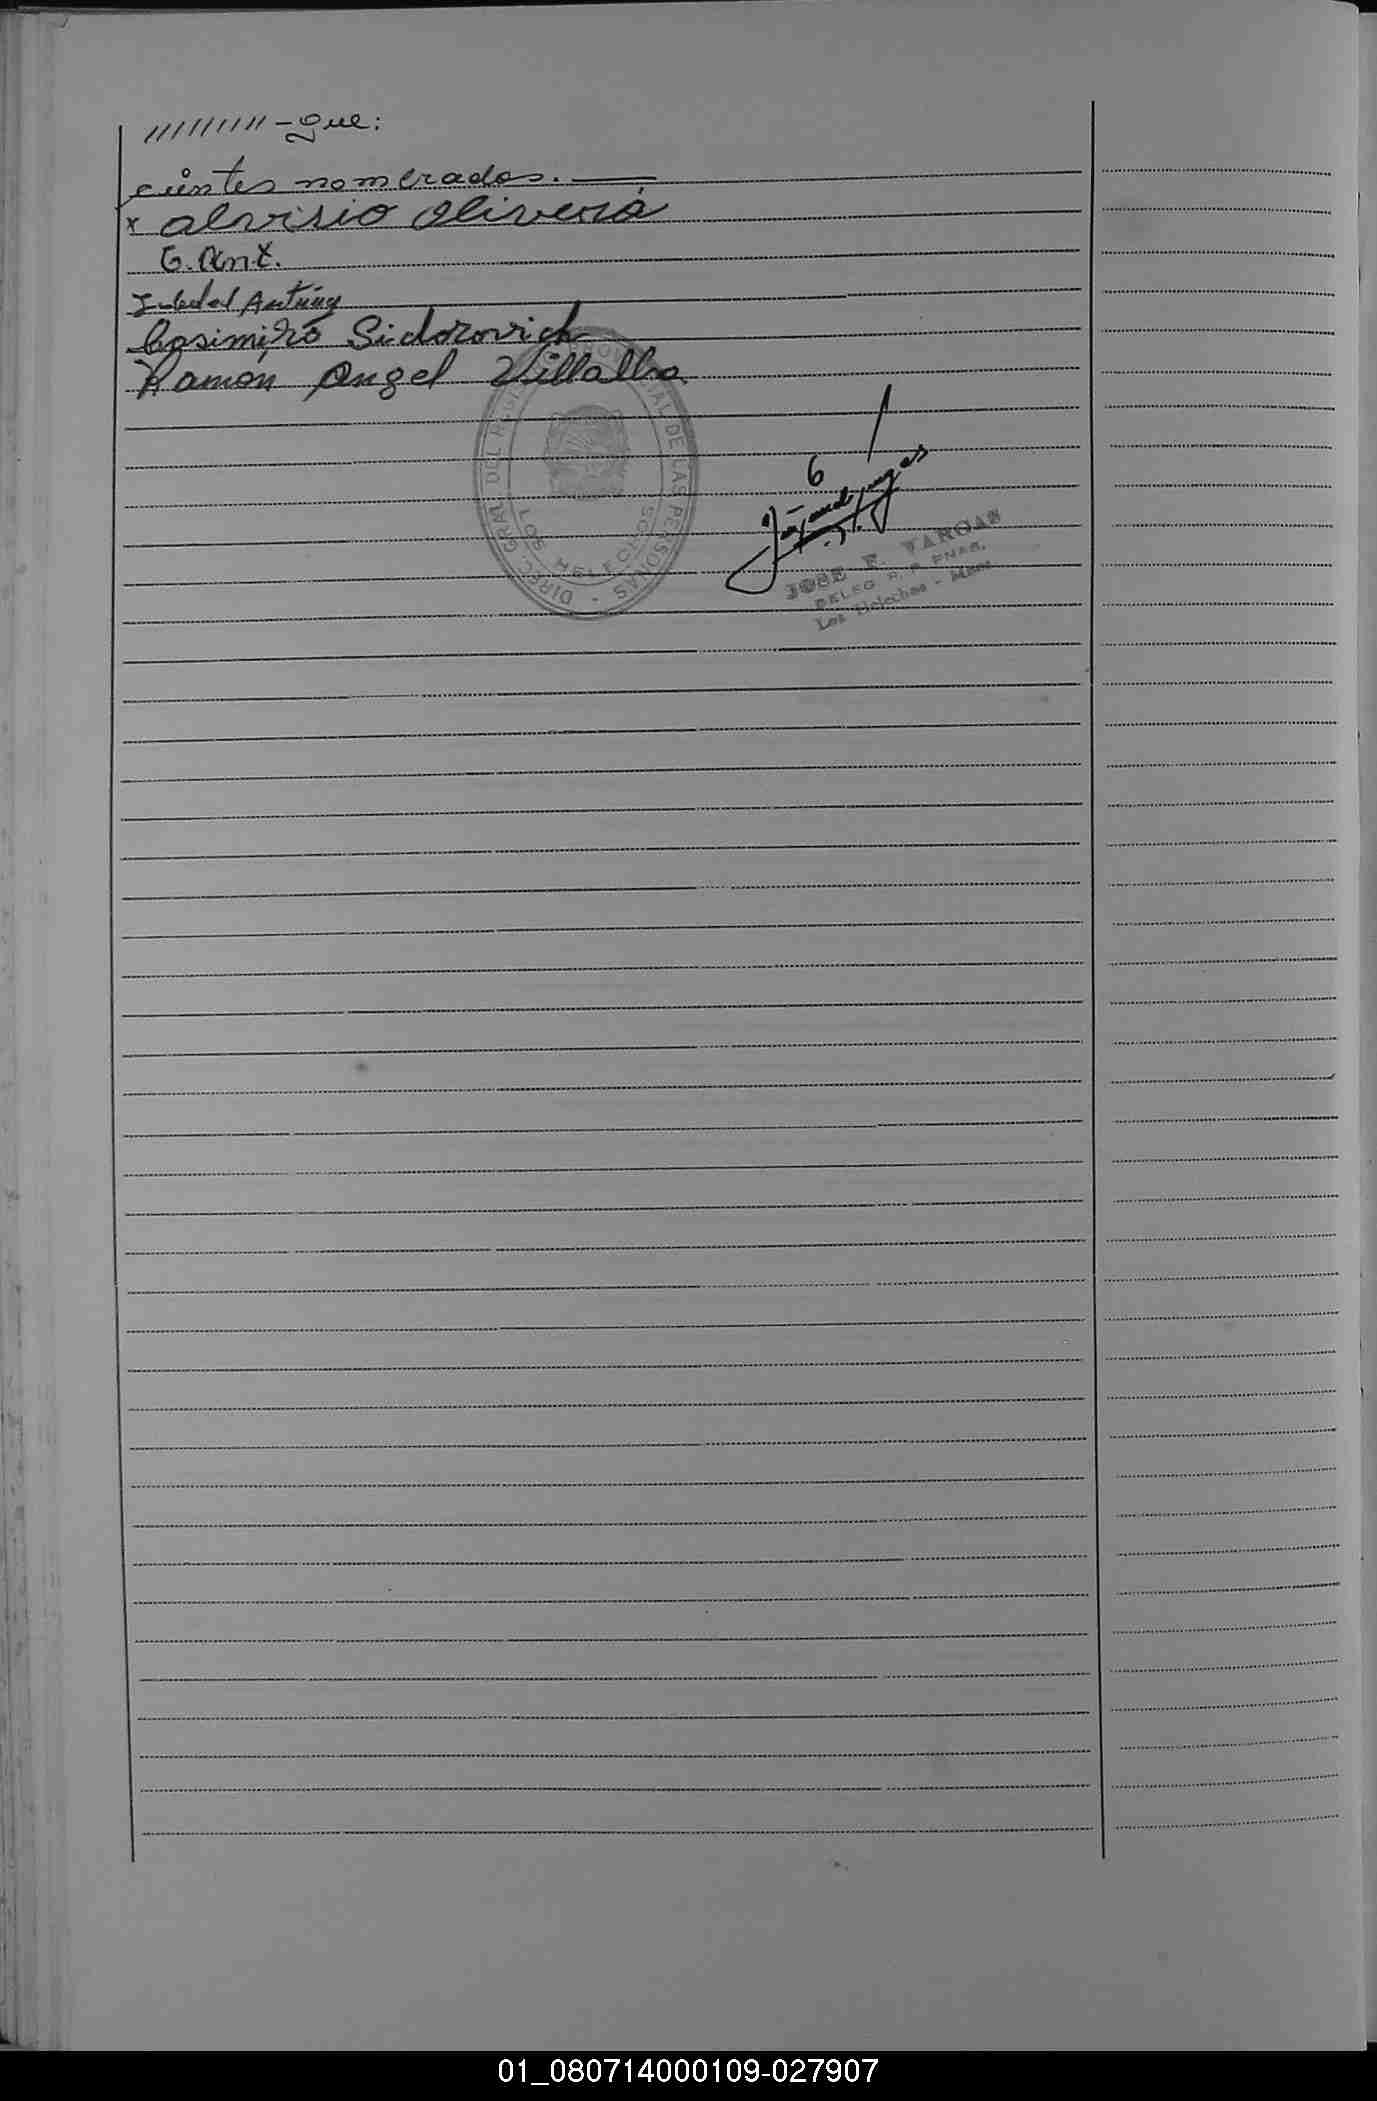 ////////// - que:
cientes nombrados.
x alvisio Olivera
G. Ant.
Casimiro Sidorovich
Ramón Angel Villalba
DIREC. GRAL. DEL REGI PROVINCIAL DE LAS PERSONAS -
LOS HELECHOS
6
JOSE F. VARGAS
DELEG. R. P. PNAS.
Los Helechos - Mnes
01_080714000109-027907